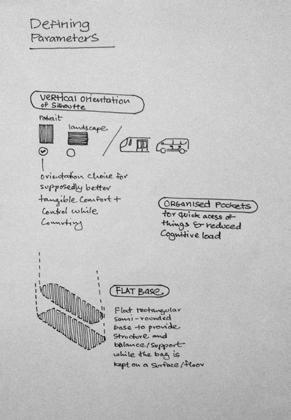 Defining
Parameters
Vertical orientation
of Silhoutte
Potrait
landscape
orientation choice for
supposedly better
tangible comfort +
Control while
Commuting
Organised Pockets
for quick acess of
things & reduced
Cognitive load
FLAT BASE
Flat rectangular
semi-rounded
base to provide
structure and
balance/support
while the bag is
kept on a surface/floor